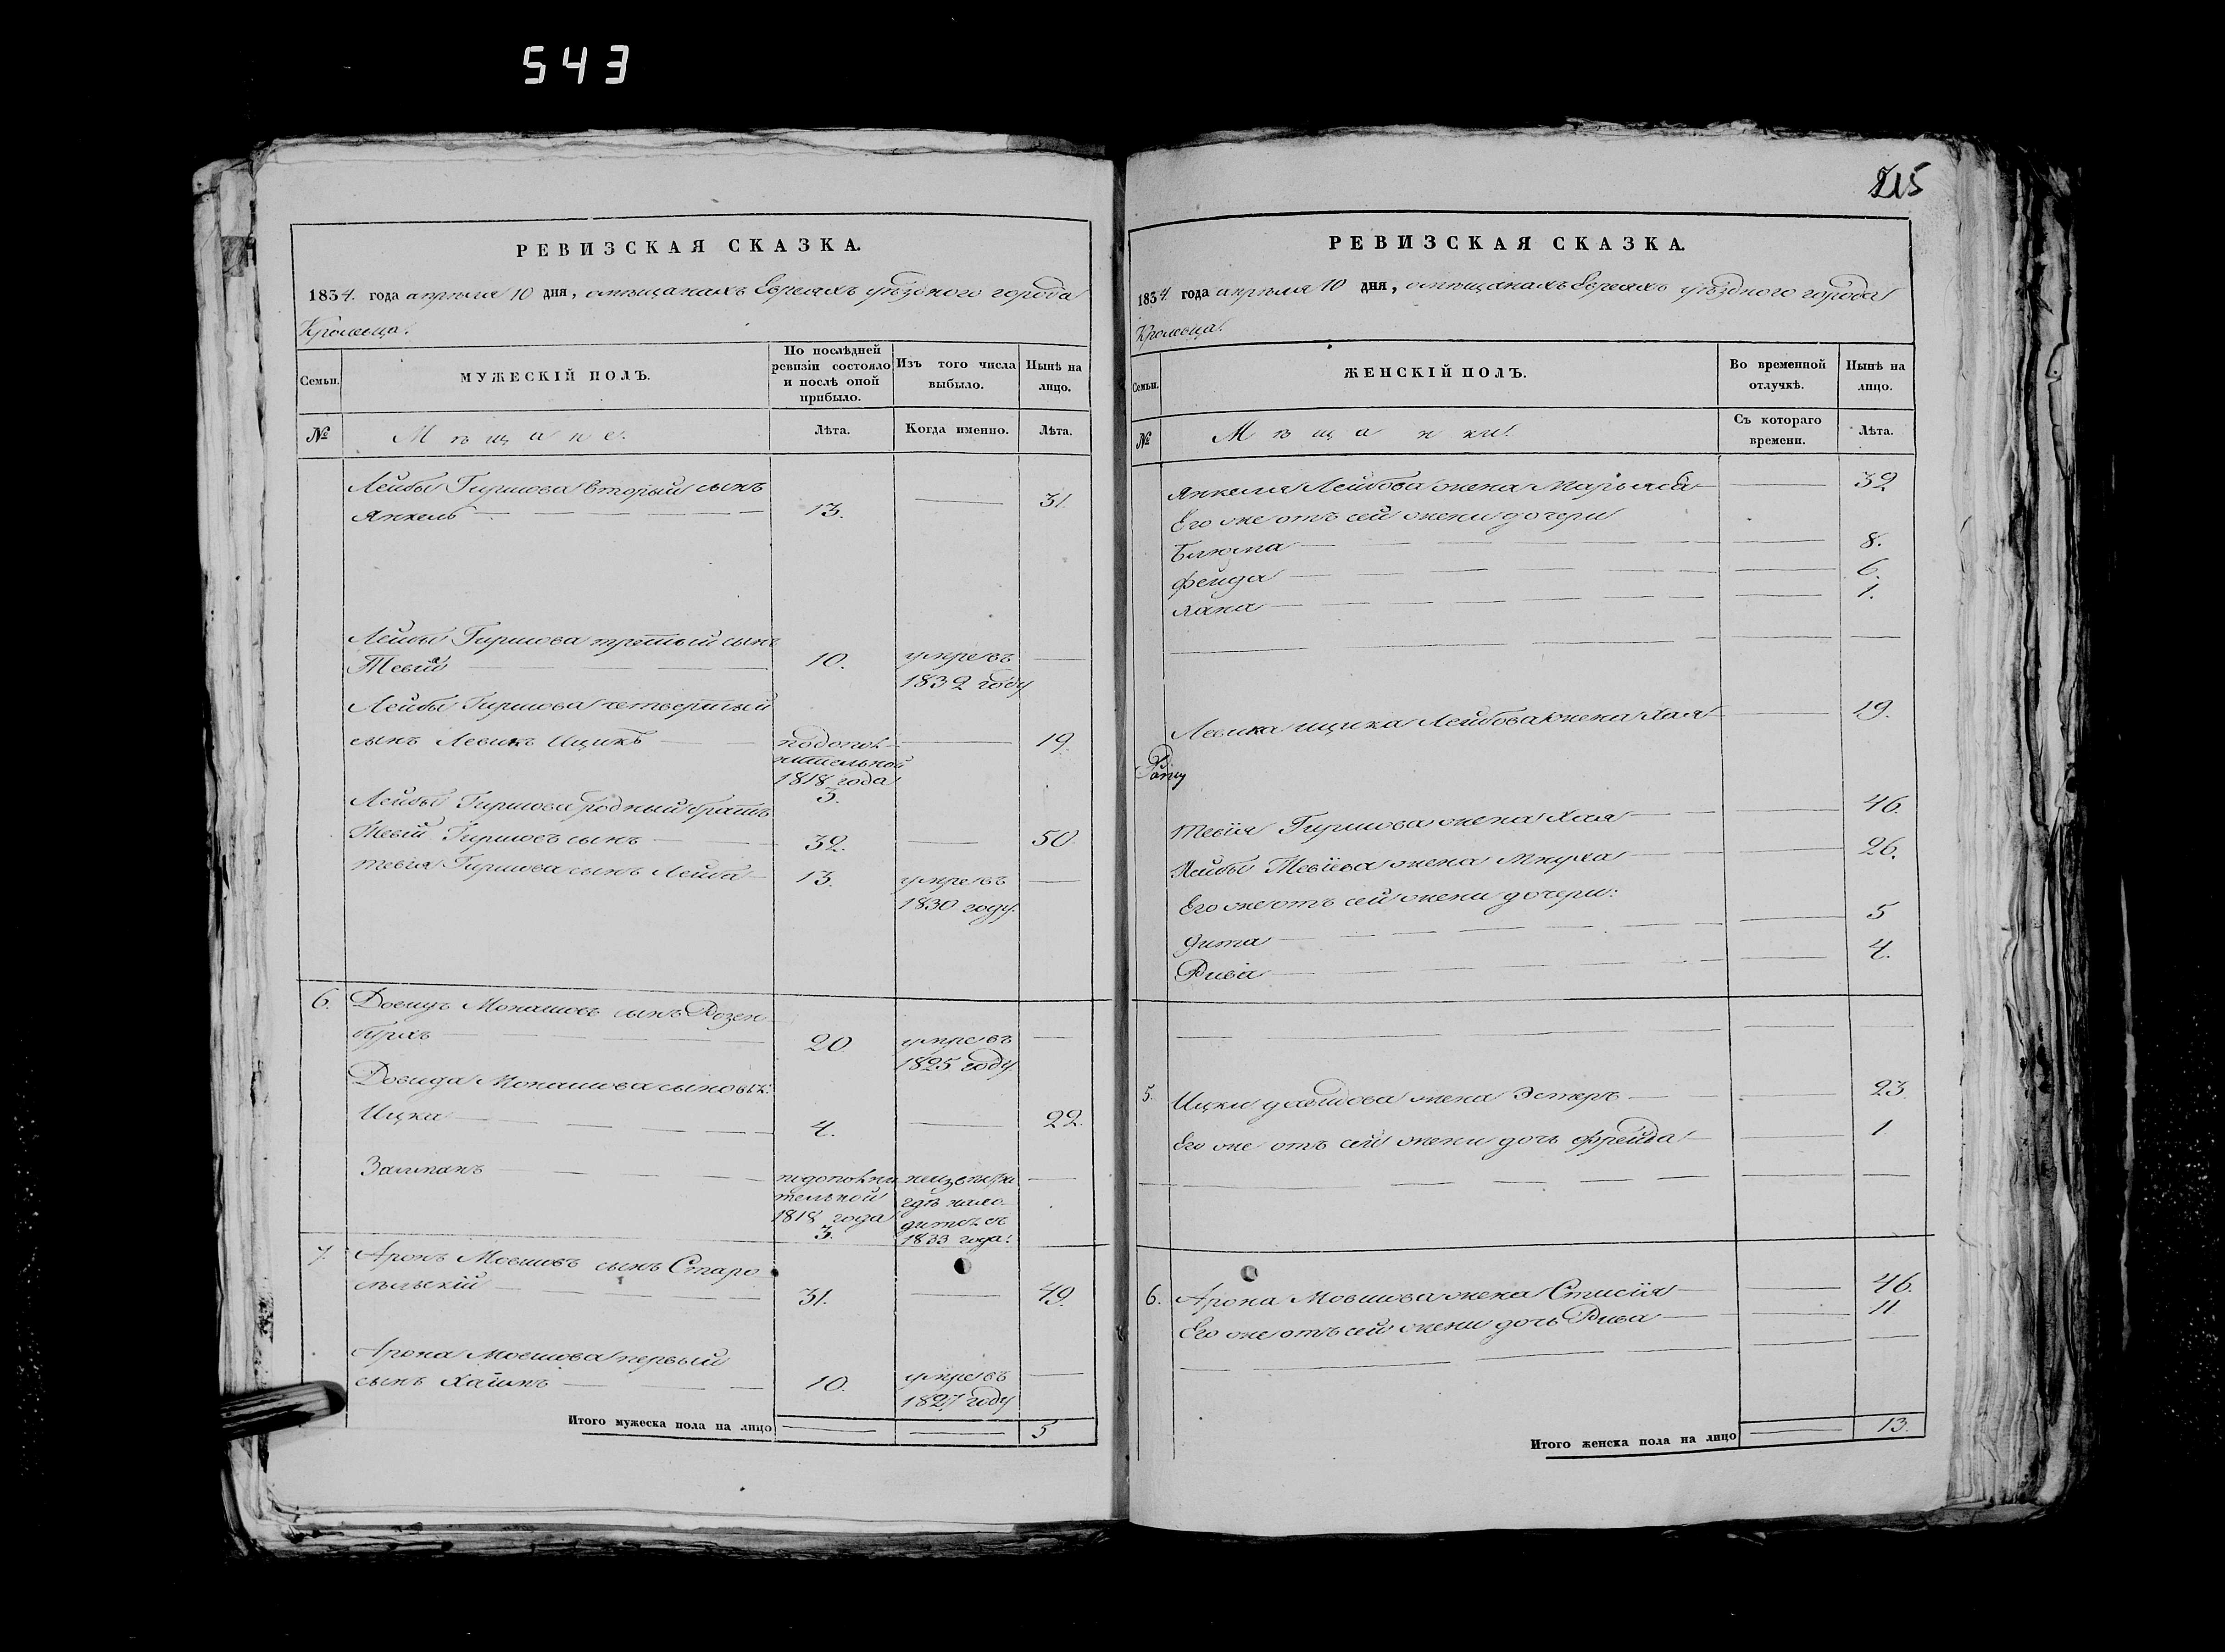 543
РЕВИЗСКАЯ СКАЗКА.
1834. года апреля 10 дня, о мѣщанахъ Евреяхъ уѣздного города
Кролевца.
Семьи.
МУЖЕСКІЙ ПОЛЪ.
По послѣдней
ревизіи состояло
и послѣ оной
прибыло.
Изъ того числа
выбыло.
Нынѣ на
лицо.
№
Мѣщане.
Лѣта.
Когда именно.
Лѣта.
Лейбы Гиршова вторый сынъ
Янкель 13. 31.
Лейбы Гиршова третый сынъ
Тевій 10. умре въ
1832 году
Лейбы Гиршова четвертый
сынъ Левикъ Ицикъ по допол- 19.
нительной
1818 года
3.
Лейбы Гиршова родный братъ
Тевій Гиршовъ сынъ 32. 50
Тевія Гиршова сынъ Лейба 13. умре въ
1830 году.
6. Довидъ Монашовъ сынъ Розен
бухъ 20 умре въ
1825 году
Довида Монашова сыновья:
Ицка 4. 22.
Залманъ по дополни неизвѣстно
тельной гдѣ нахо-
1818 года дится съ
3. 1833 года.
7. Аронъ Мовшовъ сынъ Старо
сельскій 31. 49.
Арона Мовшова первый
сынъ Хаимъ 10. умре въ
1827 году
Итого мужеска пола на лицо 5
215
РЕВИЗСКАЯ СКАЗКА.
1834. года апреля 10 дня, о мѣщанахъ Евреяхъ уѣздного города
Кролевца.
Семьи.
ЖЕНСКІЙ ПОЛЪ.
Во временной
отлучкѣ.
Нынѣ на
лицо.
№
Мѣщанки.
Съ котораго
времени.
Лѣта.
Янкеля Лейбова жена Марьяся 32
Его же отъ сей жены дочери
Блюма 8.
Фейда 6.
Хана 1.
Левика Ицика Лейбова жена Хая 19.
Тевія Гиршова жена Хая 46.
Лейбы Тевіева жена Мнуха 26.
Его же отъ сей жены дочери:
Дита 5
Рива 4.
5. Ицки Давидова жена Эстеръ 23
Его же отъ сей жены дочь Фрейда 1
6. Арона Мовшова жена Стисія 46.
Его же отъ сей жены дочь Рива 11
Итого женска пола на лицо 13.